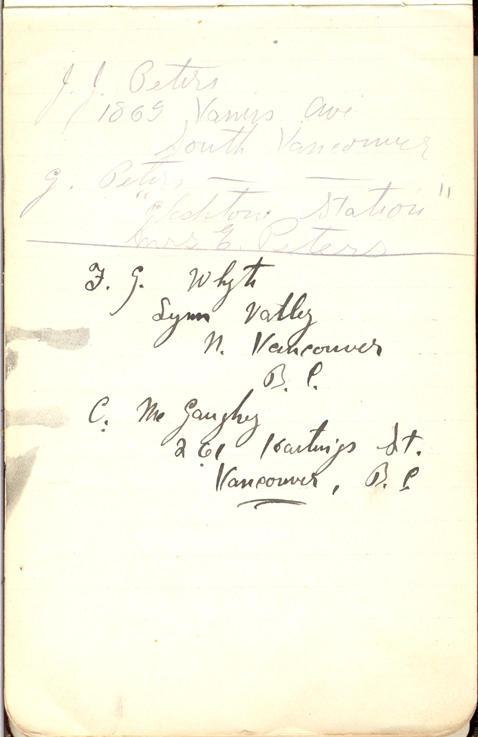 J. J. Peters
1869 Ave
South Vancouver
G. Peters
Station"
Mrs E. Peters
F. G. Whyte
Lynn Valley
N. Vancouver
B. C.
C. Mc Gaughey
261 Hastings St.
Vancouver, B. C